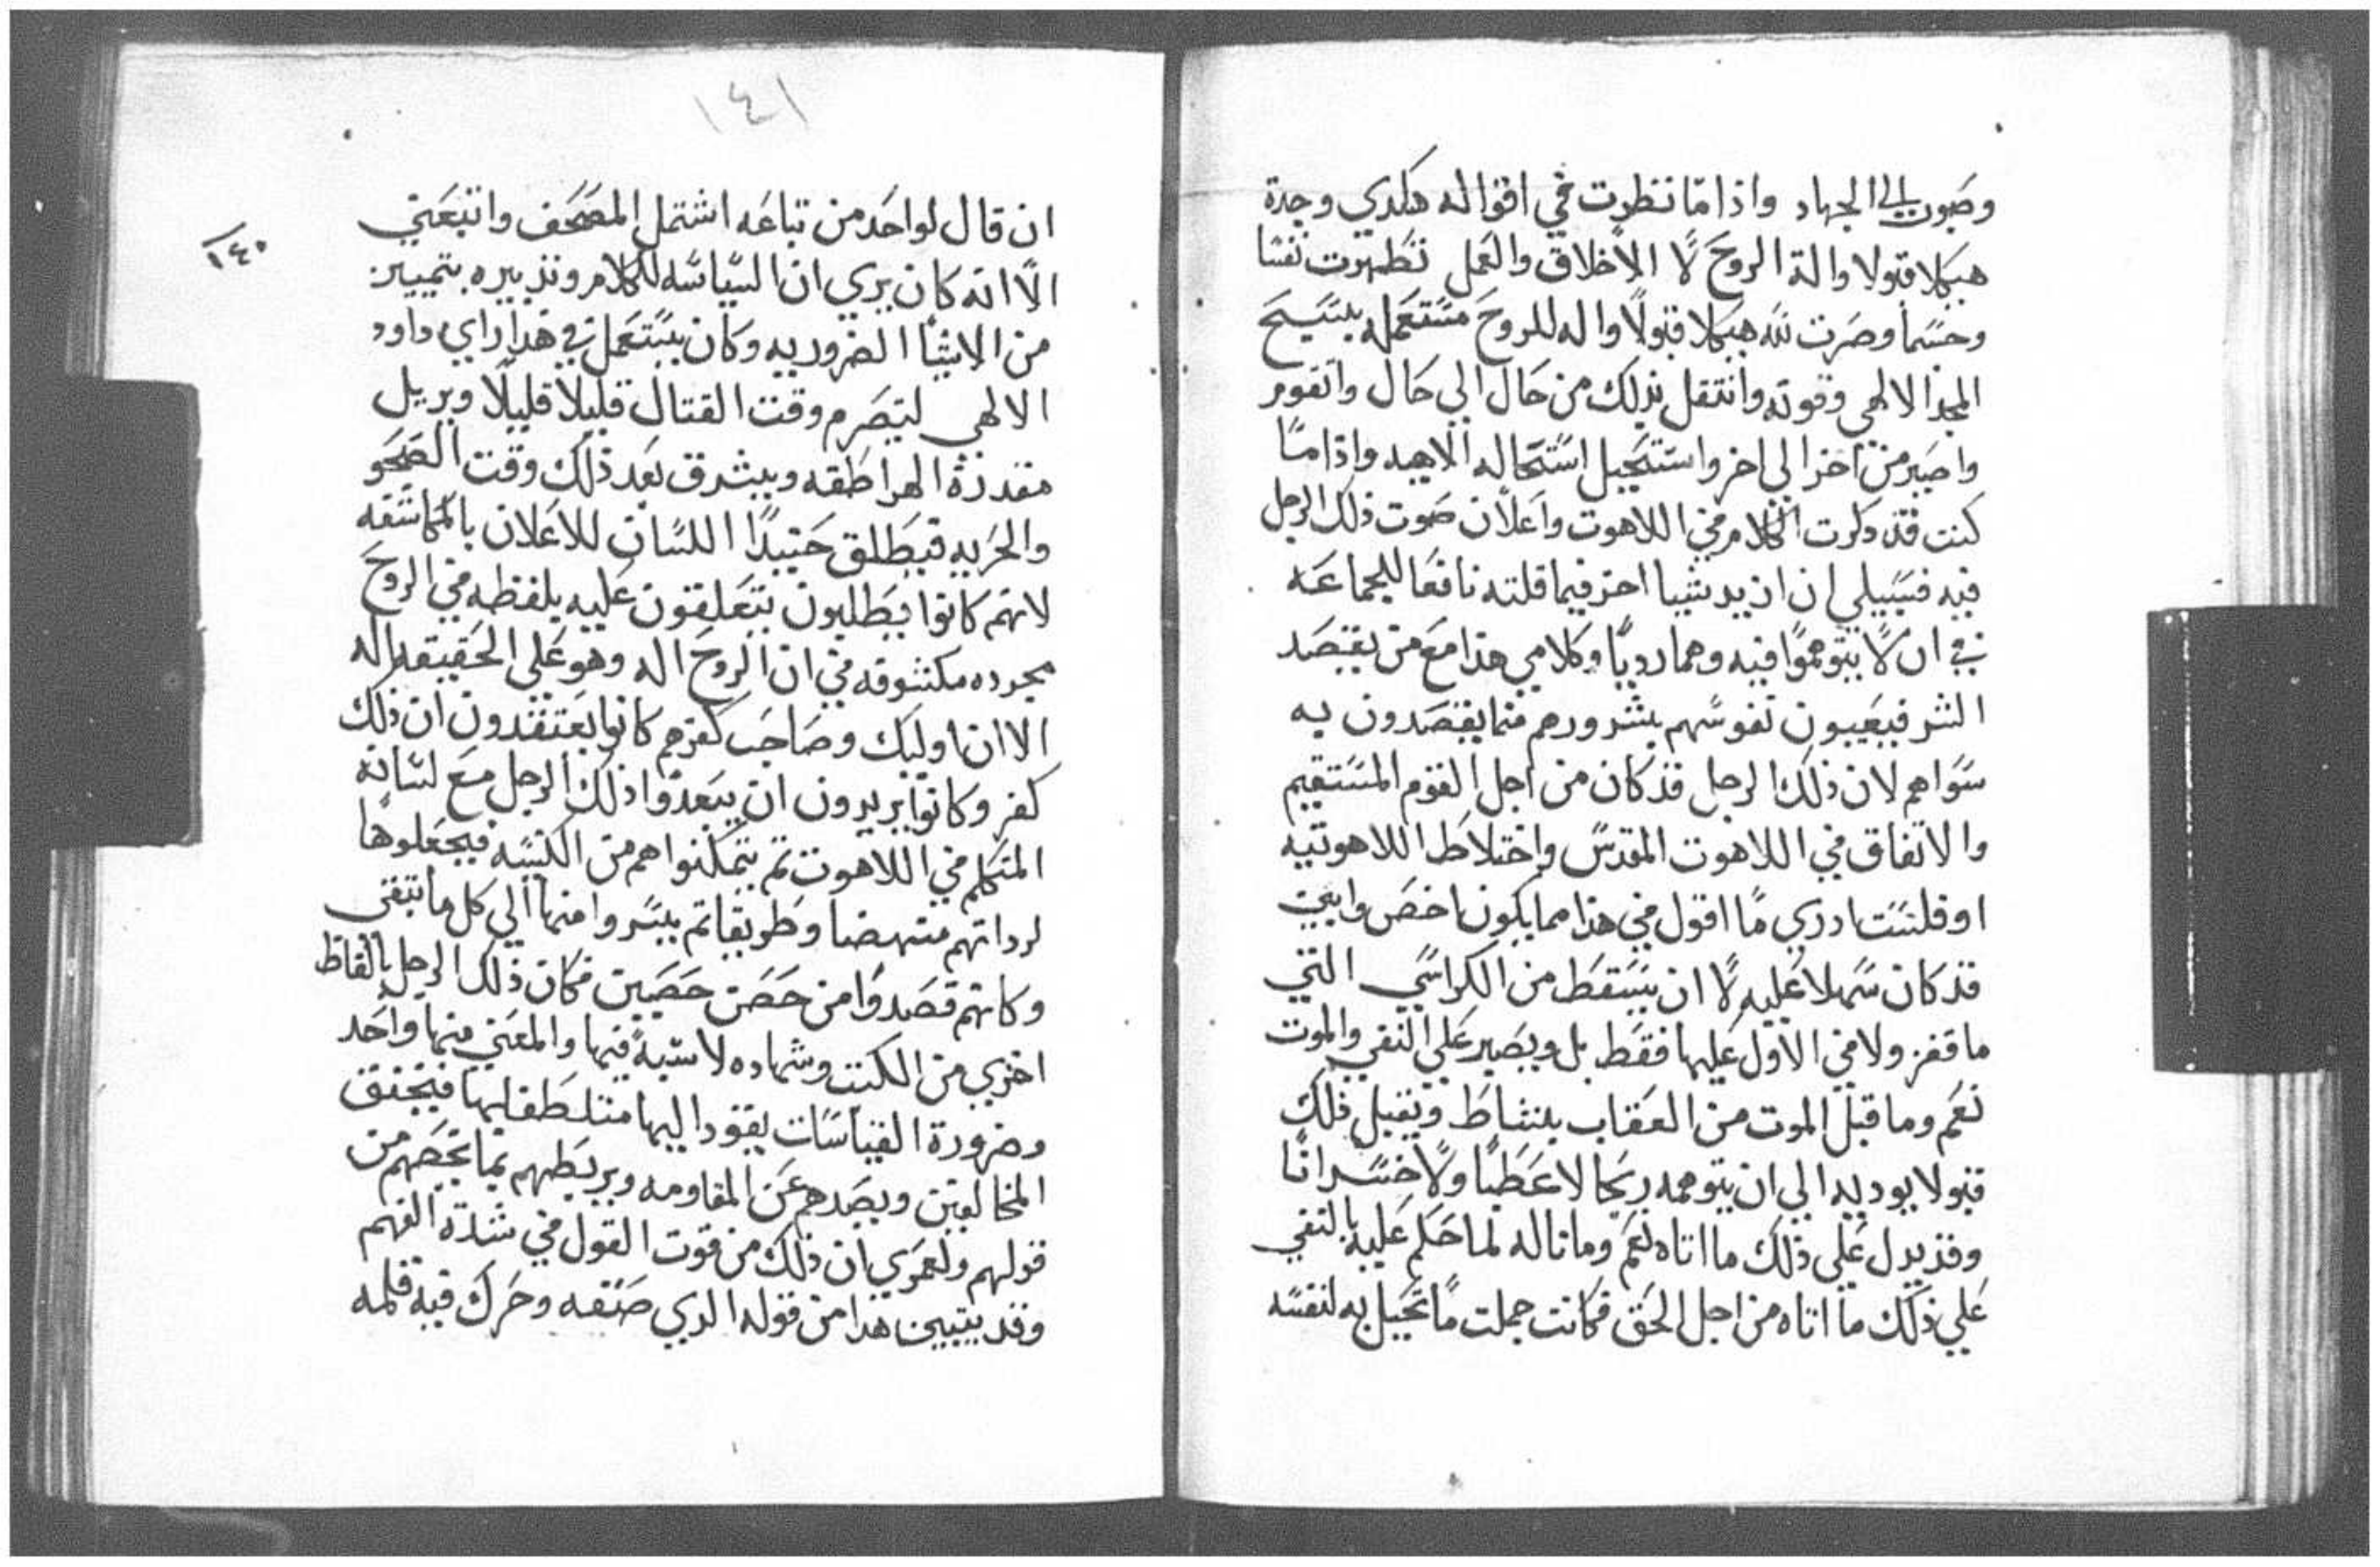 وصَوت الي الجهاد واذا مّا نظرت في اقواله هكدي وجدة
هيكلا قبولا والة الروحَ لًا الاخلاق والعَمل تطَهرت نفسًا
وحسّما وصَرت للّه هيكلا قبولًا واله للروحَ مسَتعَمله بتسَيحَ
المجد الالهي وقوته وانتقل بدلك من حَال الي حَال واتقوم
واصَير من اخر الي اخر واستحَيل استَحاله الاهيه واذا مًا
كنت قد دكرت الكلام في اللاهوت واعَلان صَوت ذلك الرجل
فيه فسَبيلي ان ازيد شيا اخر فيما قلته نافعَا للجماعَه
في ان لًا يتوهموًا فيه وهما رديًا وكلامي هذا معَ من يقصَد
الشر فيعَيبون نفوسَهم بشرورهم فيما يقصَدون به
سَواهم لان ذلك الرجل قد كان من اجل القوم المسَتقيم
والاتفاق في اللاهوت المقدسَ واختلاطَ اللاهوتيه
او فلسَت ادري مًا اقول في هذا مما يكون اخصَ وابين
قد كان سَهلا عَليه لًا ان يسَقطَ من الكراسَي التي
ما قفز ولا في الاول عَليها فقطَ بل ويصَير عَلي النفي والموت
نعَم وما قبل الموت من العَقاب بنشاطَ وتقبل ذلك
قبولا يوديه الي ان يتوهمه ربحَا لا عَطَبًا ولًا خسَرانًا
وقد يدل عَلي ذلك ما اتاه نعَم وما ناله لما حَكم عَليه بالنفي
عَلي ذلك ما اتاه من اجل الحَق فكانت جملت مًا تحَيل به لنفسَه
١٤١
١٤٠
ان قال لواحَد من تباعَه اشتمل المصَحَف واتبعَني
الًا انه كان يري ان السَياسَه للكلام وتدبيره بتمييز
من الاشيًا الضروريه وكان يسَتعَمل في هذا راي داود
الالهي ليتصَرم وقت القتال قليلًا قليلًا ويزيل
مقدرة الهراطَقه ويشرق بعَد ذلك وقت الصَحَو
والحَريه فيطَلق حَينيدًا اللسَان للاعَلان بالمكاشفه
لانهم كانوا يطَلبون يتعَلقون عَليه بلفظه في الروحَ
مجرده مكشوفه في ان الروحَ اله وهو عَلي الحَقيقه اله
الا ان اوليك وصَاحَب كفرهم كانوا يعَتقدون ان ذلك
كفر وكانوا يريدون ان يبعَدوًا ذلك الرجل معَ لسَانه
المتكلم في اللاهوت تم يتمكنوا هم من الكنسَه فيجعَلوها
لرداتهم منهضا وطَريقا تم يسَروا منها الي كل ما تبقي
وكانهم قصَدوا من حَصَن حَصَين فكان ذلك الرجل بالفاظ
اخري من الكتب وشهاده لا سَبهً فيها والمعَني منها واحَد
وضرورة القياسَات يقود اليها متلطَفليها فيخنق
المخالفين ويصَدهم عَن المقاومه ويربطَهم بما يخصَهم من
قولهم ولعَمري ان ذلك من قوت القول في شدة الفهم
وقد يتبين هدا من قوله الدي صَنفه وحَرك فيه قلمه